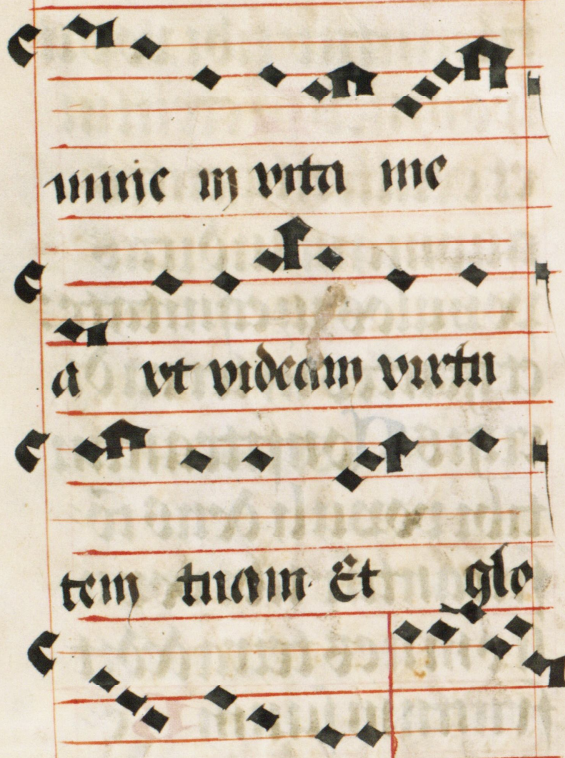 mine in vita me
a vt videam virtu
tem tuam Et glo